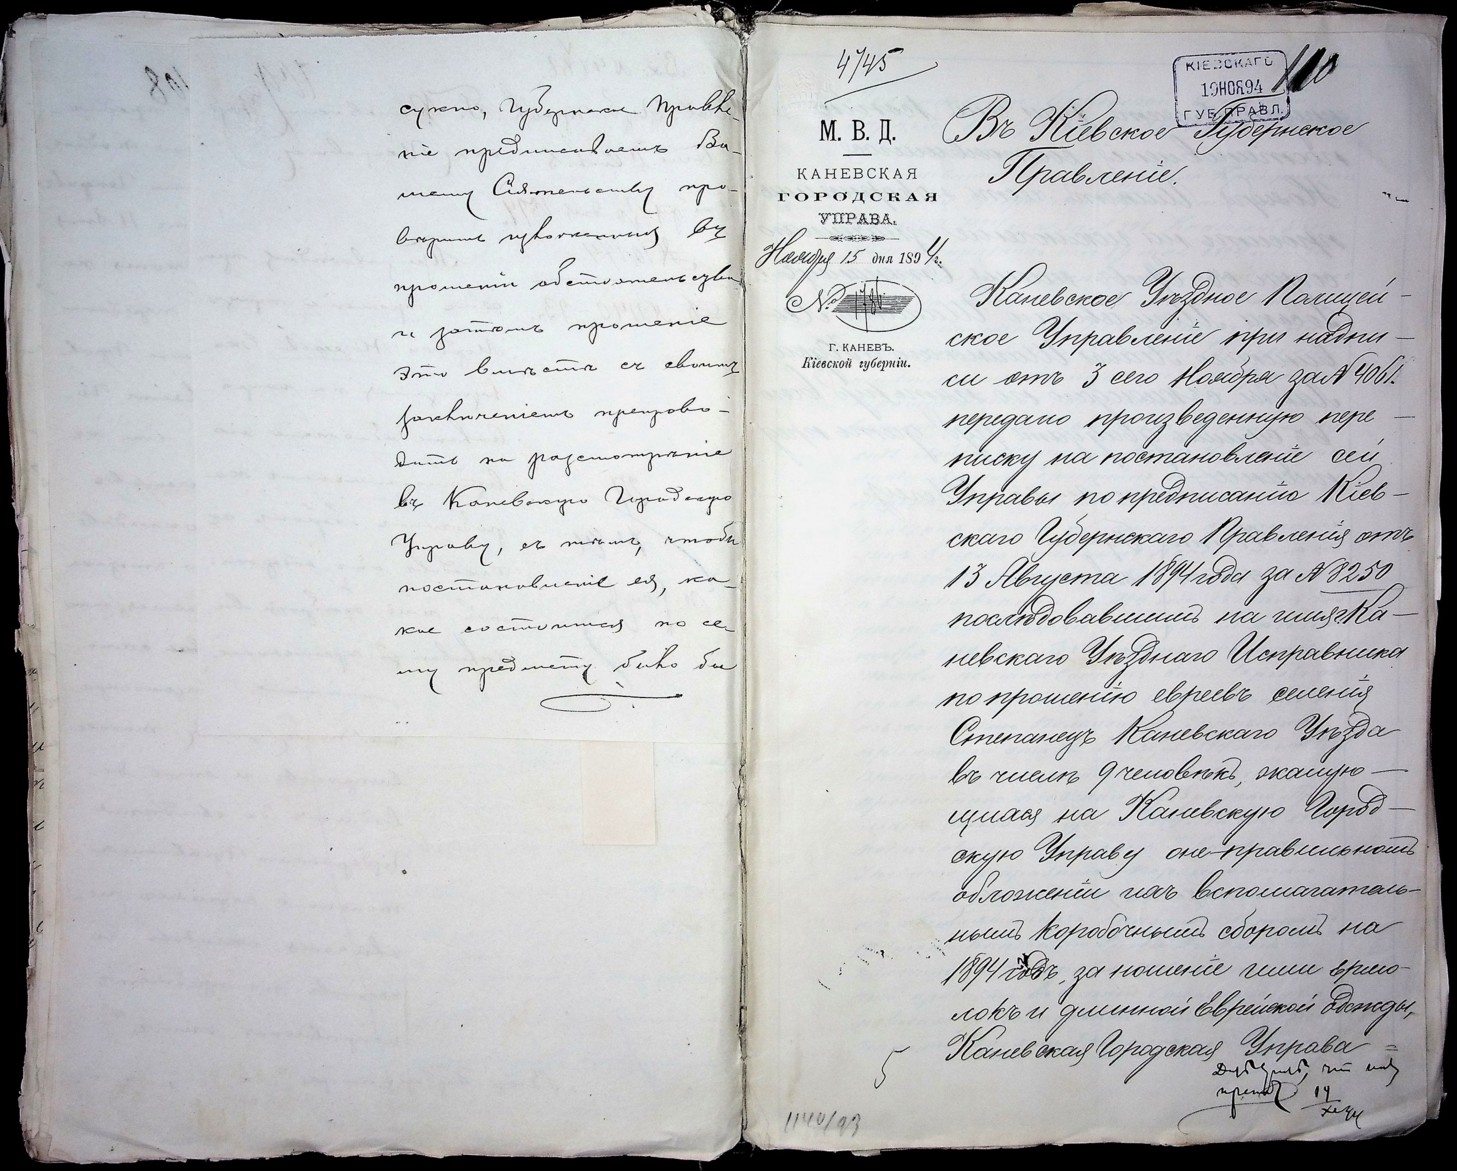 сужно, Губернское Правле-
ніе предписываетъ Ва-
шему Сіятельству про-
вѣрить изложенныя въ
прошеніи обстоятельства
и затѣмъ прошеніе
это вмѣстѣ съ своимъ
заключеніемъ препрово-
дить на разсмотрѣніе
въ Каневскую Городскую
Управу, съ тѣмъ, чтобы
постановленіе ея, ка-
кое состоится по се-
му предмету было бы
4745
КІЕВСКАГО
19НОЯ94
ГУБ.ПРАВЛ.
110
М. В. Д.
КАНЕВСКАЯ
ГОРОДСКАЯ
УПРАВА.
Ноября 15 дня 1894 г.
№ 1786
Г. КАНЕВЪ.
Кіевской губерніи.
Въ Кіевское Губернское
Правленіе.
Каневское Уѣздное Полицей-
ское Управленіе при надпи-
си отъ 3 сего Ноября за № 4061
передано произведенную пере-
писку на постановленіе сей
Управы по предписанію Кіев-
скаго Губернскаго Правленія отъ
13 Августа 1894 года за № 8250
послѣдовавшимъ на имя Ка-
невскаго Уѣзднаго Исправника
по прошенію евреевъ селенія
Степанецъ Каневскаго Уѣзда
въ числѣ 9 человѣкъ, жалую-
щихся на Каневскую Город-
скую Управу о неправильномъ
обложеніи ихъ вспомагатель-
нымъ коробочнымъ сборомъ на
1894 годъ, за ношеніе ими ермо-
локъ и длинной Еврейской одежды,
Каневская Городская Управа
5
1140/93